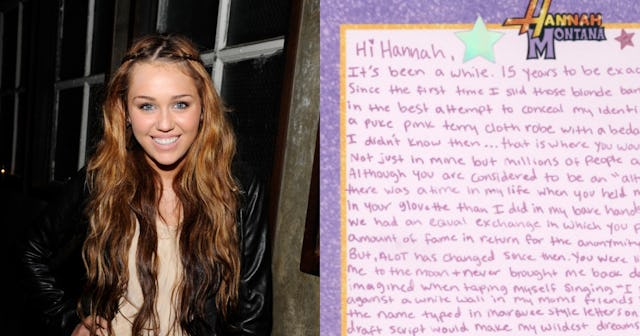 HANNAH
MONTANA
Hi Hannah,
It's been a while. 15 years to be exa
Since the first time I slid those blonde ban
in the best attempt to conceal my identi
a puke pink terry cloth robe with a bed
I didn't know then... that is where you wou
Not just in mine but millions of people a
Although you are considered to be an "alt
there was a time in my life when you held
in your glovette than I did in my bare hand
We had an equal exchange in which you p
amount of fame in return for the anonymit
But, ALOT has changed since then. You were li
me to the moon + never brought me back d
imagined when taping myself singing "I
against a white wall in my moms friends
the name typed in marquee style letters on
draft script would make my wildest dream